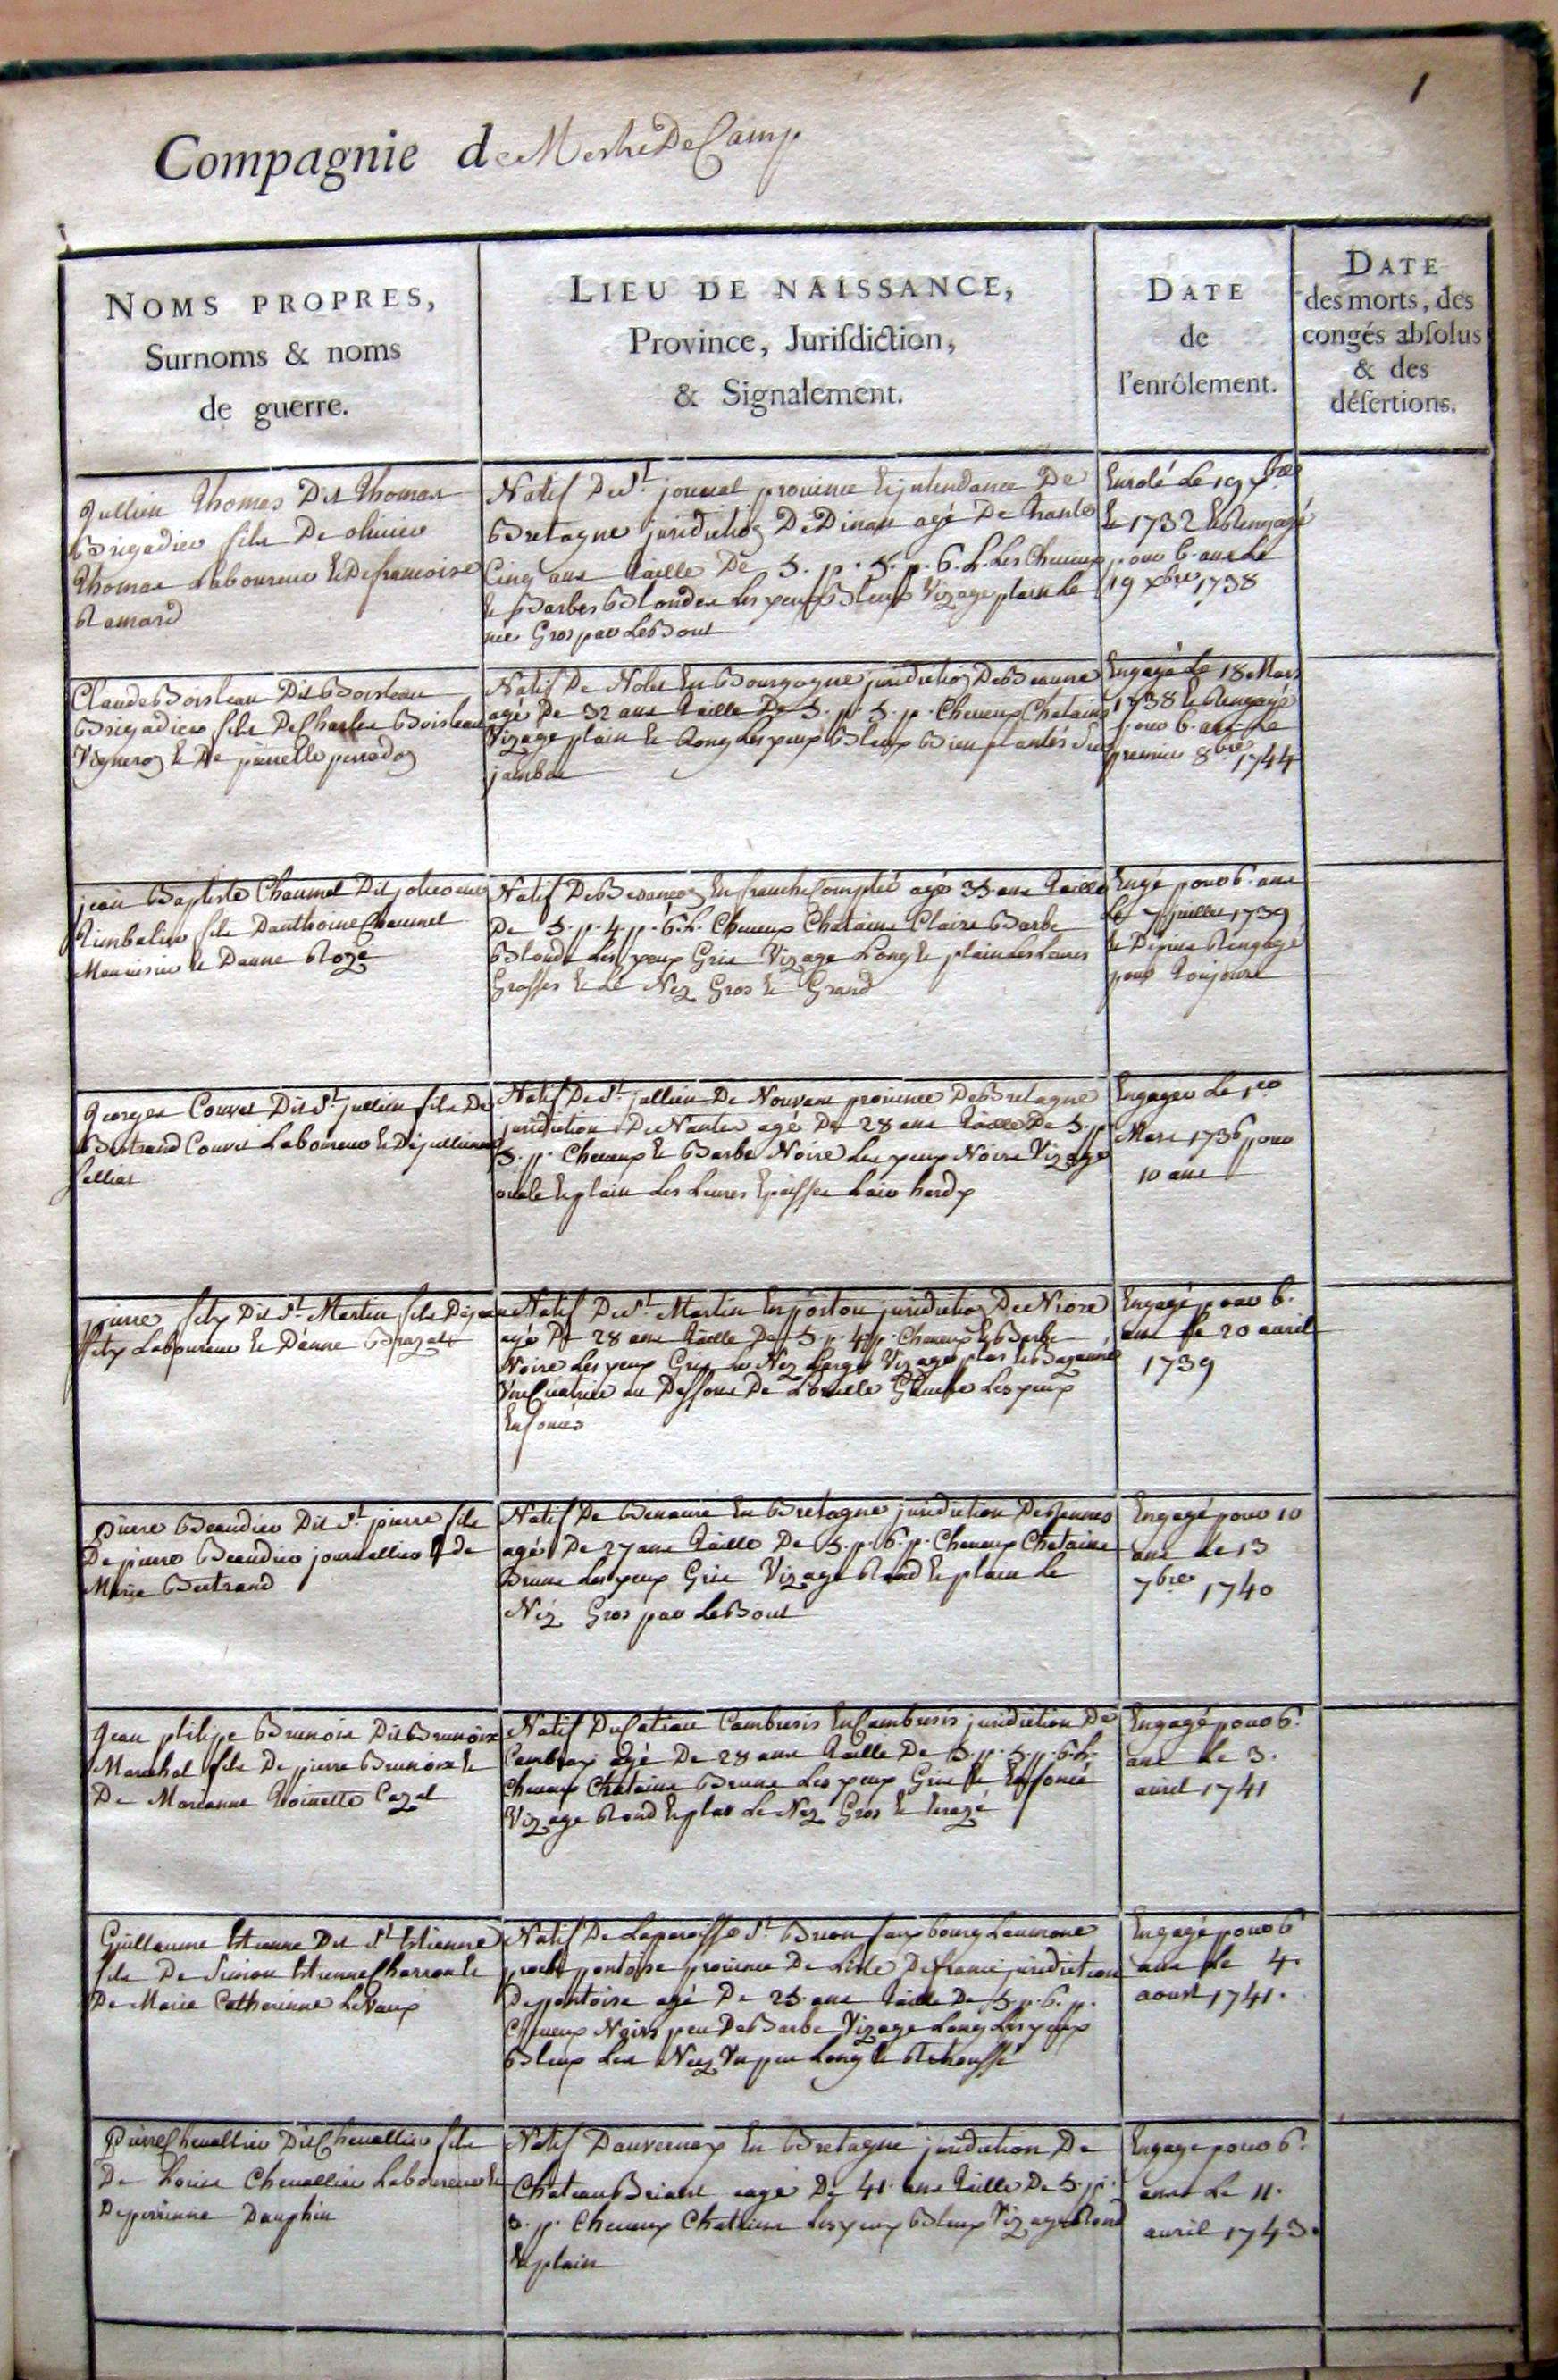 1
Compagnie de Mestre De Camp
NOMS PROPRES,
Surnoms & noms
de guerre.
LIEU DE NAISSANCE,
Province, Jurisdiction,
& Signalement.
DATE
de
l'enrôlement.
DATE
des morts, des
congés absolus
& des
désertions.
Jullien Thomas Dit Thomas
Brigadier fils De olivier
Thomas Laboureur & De francoise
Ramard
Natif De St. jouual province & jntendance De
Bretagne juridiction De Dinan agé De trante
Cinq ans taille De 5. p. 5. p. 6. L. Les Cheueux
& Barbes Blondes Les yeux Bleux Vizage plain Le
née Gros par Le Bout
Enrolé Le 19 xbre
& 1732 & Rengagé
pour 6. ans Le
19 xbre 1738
Claude Boisleau Dit Boisleau
Brigadier fils De Charles Boisleau
Vigneron & De pierrette perrodon
Natif De Nolet En Bourgogne juridiction De Beaune
agé De 32 ans taille De 5. p. 5. p. Cheueux Chatains
Vizage plain & Long Les yeux Bleux Bien plantés Sur
jambes
Engagé Le 18 Mars
1738 & Rengagé
pour 6. ans Le
premier 8bre 1744
jean Baptiste Chaumel Dit jolicoeur
Timbalier fils Danthoine Chaumel
Menuisier & Danne Roze
Natif De Besançon En franche Comptée agé 35 ans taille
De 5. p. 4. p. 6. L. Cheueux Chataine Claire Barbe
Blonde Les yeux Gris Vizage Long & plain Les Leures
Grosses & Le Nez Gros & Grand
Engé pour 6. ans
Le 7 juillet 1739
& Depuis Rengagé
pour toujours
Georges Couvet Dit St. jullien fils De
Bertrand Couvet Laboureur & De jullienne
Natif De St. jullien De Nouvans prouince De Bretagne
juridiction De Nantes agé De 28 ans taille De 5. p
5. p. Cheueux & Barbe Noire Les yeux Noirs Vizage
ouale & plain Les Leures Epaisses Lair hardy
Engager Le 1er
Mars 1736 pour
10 ans
pierre fily Dit St. Martin fils De jean
fily Laboureur & Danne
Natif De St. Martin En poitou juridiction De Niore
agé De 28 ans taille De 5 p. 4 p. Cheueux & Barbe
Noire Les yeux Gris Le Nez Large Vizage plat & Bazanné
Vne Cicatrice au Dessous De Loreille Gauche Les yeux
Enfoncés
Engagé pour 6.
ans Le 20 auril
1739
pierre Beaudier Dit St. pierre fils
De pierre Beaudier journallier & de
Marie Bertrand
Natif De Benaure En Bretagne juridiction De Rennes
agé De 27 ans taille De 5. p. 6. p. Cheueux Chataine
Brune Les yeux Gris Vizage Rond & plain Le
Néz Gros par Le Bout
Engagé pour 10
ans Le 13
7bre 1740
Jean philipe Brunoix Dit Brunoix
Marchal fils De pierre Brunoix &
De Marianne Toinette Cazel
Natif Du Catiau Cambresis En Cambresis juridiction De
Cambray agé De 28 ans taille De 5. p. 5. p. 6. L.
Cheueux Chataine Brune Les yeux Gris & Enfoncés
Vizage Rond & plat Le Nez Gros &
Engagé pour 6.
ans Le 3.
auril 1741
Guillaume Estienne Dit St Estienne
fils De Simon Estienne Charron &
De Marie Catherinne LeVaux
Natif De La paroisse St. Brion fauxbourg Laumone
proche pontoise prouince De Lisle De france juridiction
De pontoise agé De 25. ans taille De 5. p. 6. p.
Cheueux Noirs peu De Barbe Vizage Long Les yeux
Bleux Les Nez Vn peu Long & Rehoussé
Engagé pour 6
ans Le 4.
aoust 1741.
Pierre Cheuallier Dit Cheuallier fils
De Louis Cheuallier Laboureur &
De perrinne Dauphin
Natif Dauvernay En Bretagne juridiction De
Chateau Briant eagé De 41. ans taille De 5. p.
5. p. Cheueux Chataine Les yeux Bleux Vizage Rond
& plain
Engagé pour 6.
ans Le 11.
auril 1743.